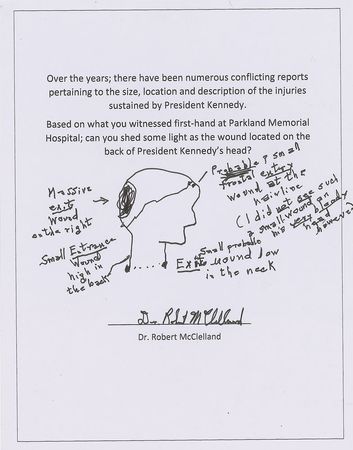 Over the years; there have been numerous conflicting reports
pertaining to the size, location and description of the injuries
sustained by President Kennedy.
Based on what you witnessed first-hand at Parkland Memorial
Hospital; can you shed some light as the wound located on the
back of President Kennedy's head?
Probable ? small
frontal entry
wound at the
hairline
(I did not see such
a small wound on
his very bloody
head
however)
Massive
exit
wound
on the right
Small Entrance
wound
high in
the back
Small probable
Exit wound low
in the neck
Dr. Robert McClelland
Dr. Robert McClelland